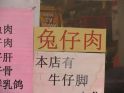 兔仔肉
本店有
牛仔脚
肉
肉
肝
骨
乳鸽